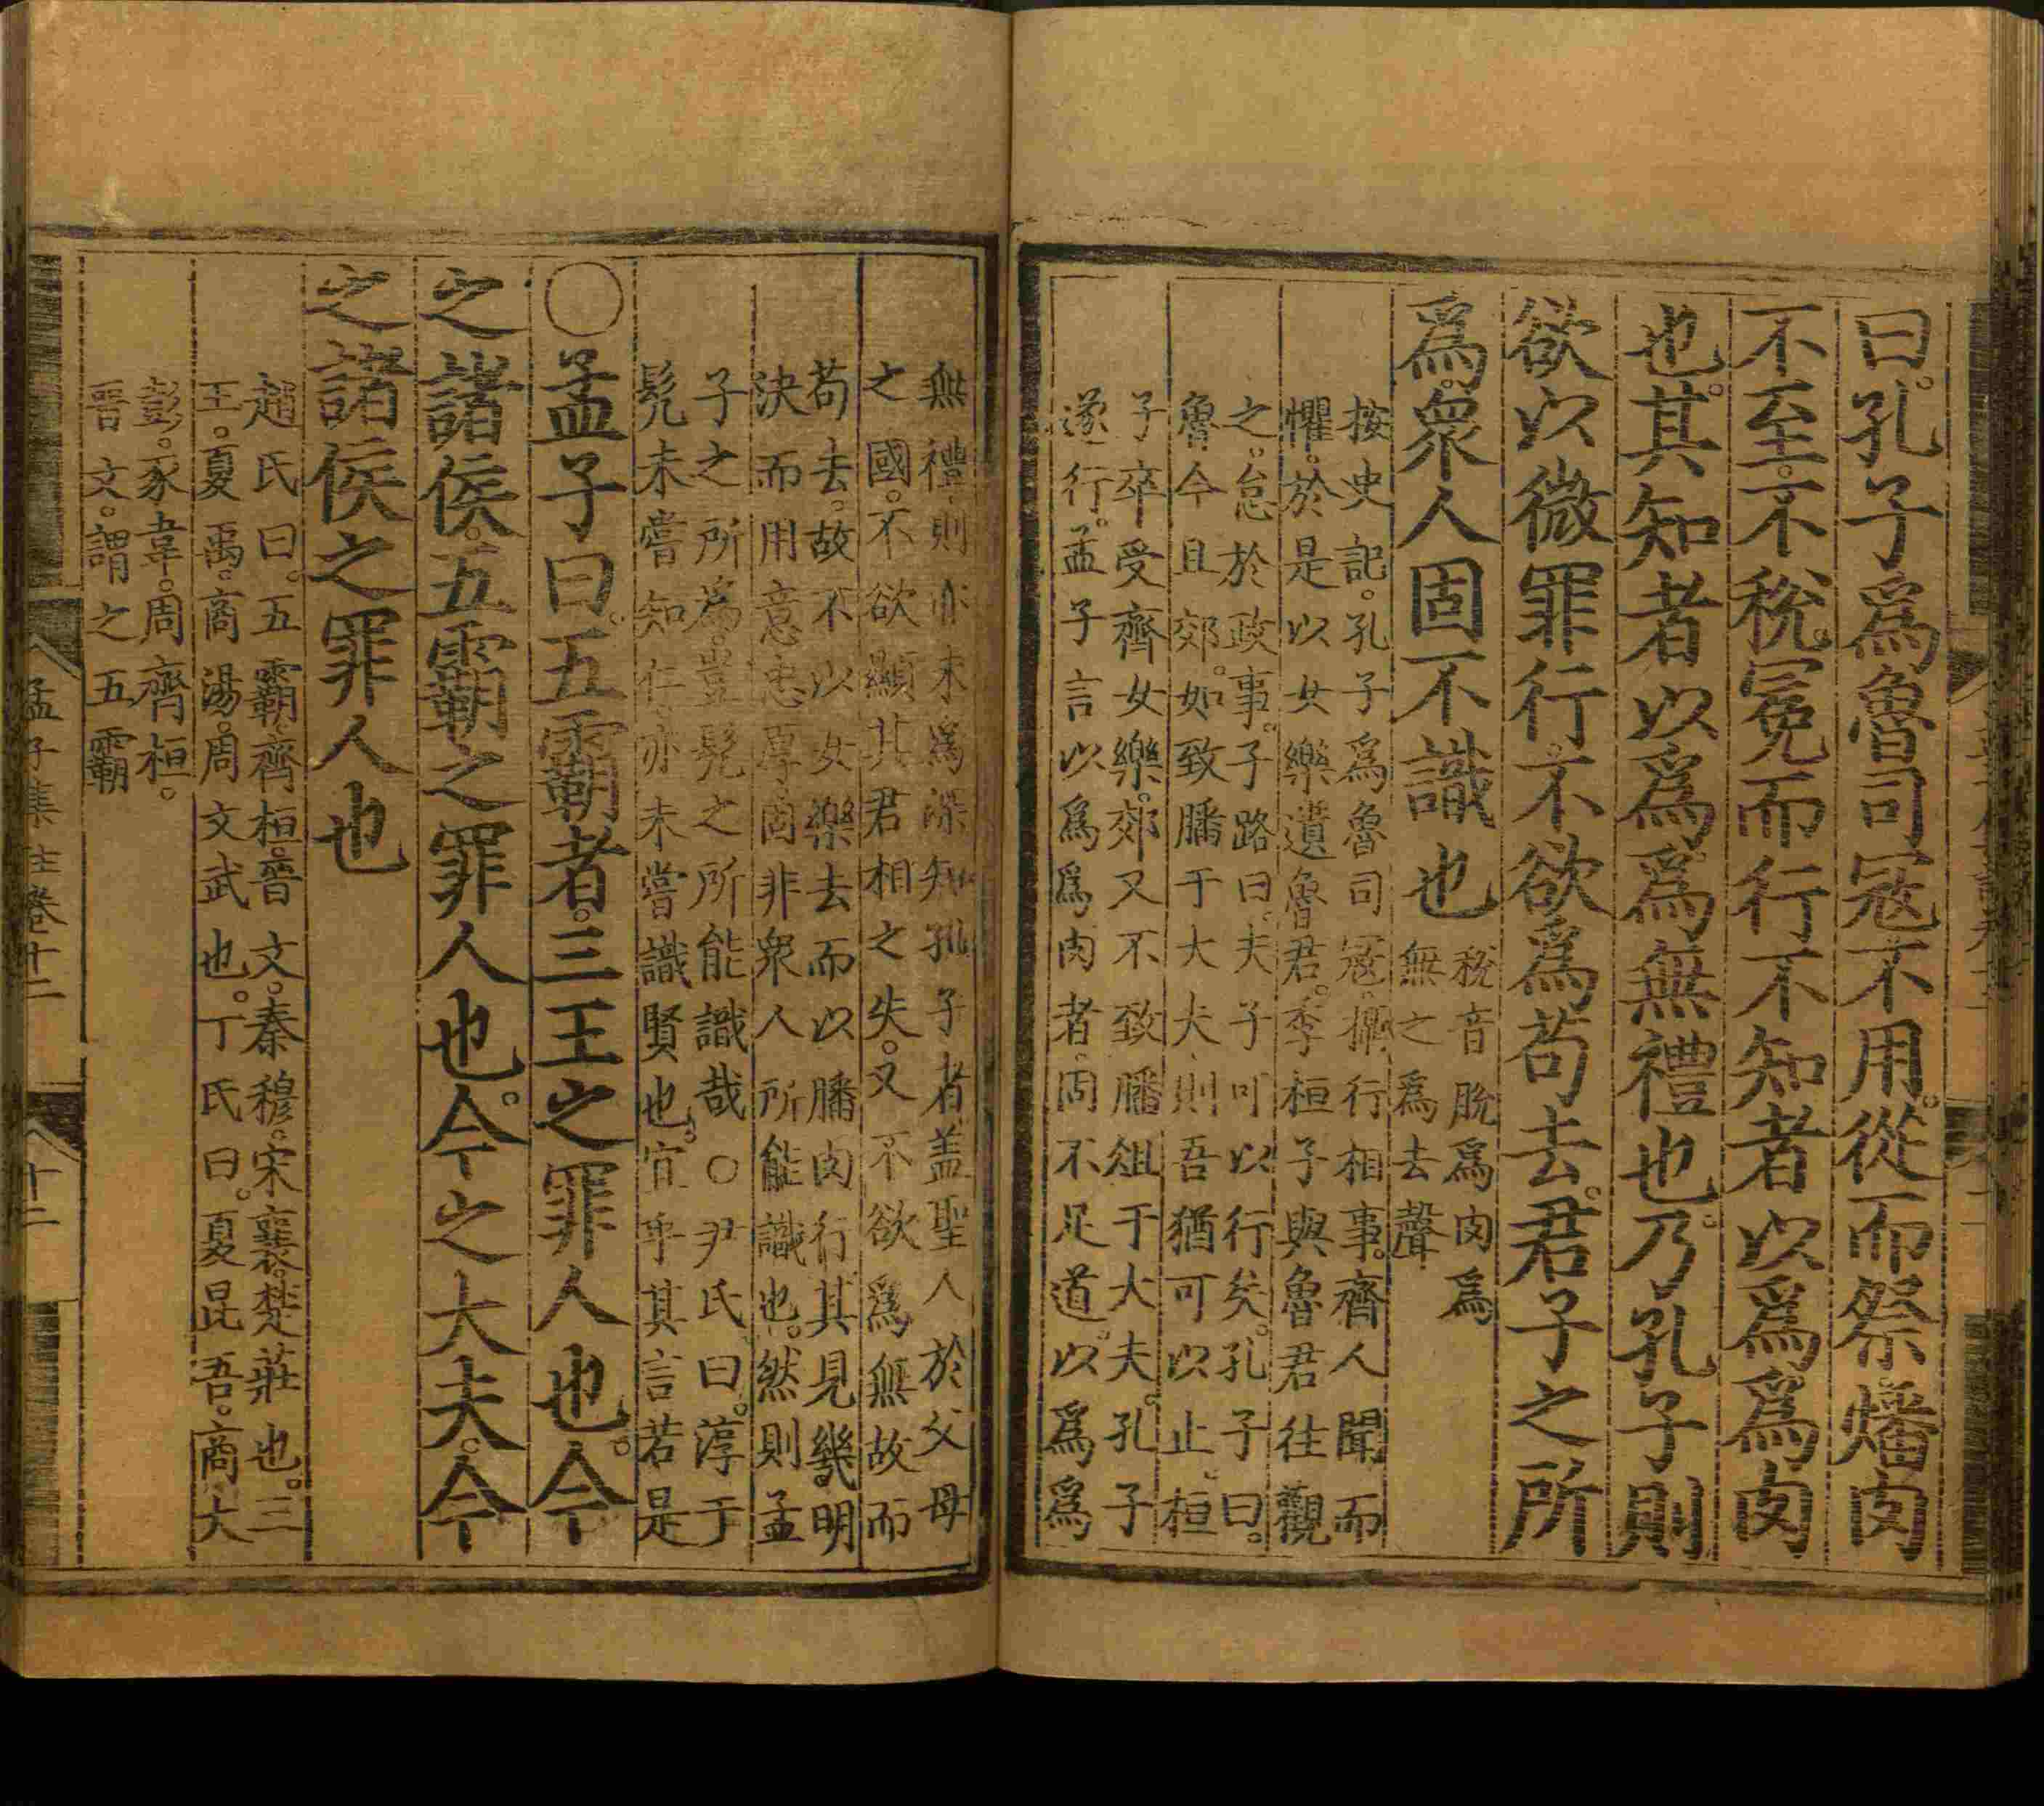 曰。孔子爲魯司冦不用。從而祭。燔肉
不至。不稅冕而行不知者以爲爲肉
也。其知者以爲爲無禮也。乃孔子則
欲以微罪行。不欲爲苟去。君子之所
爲。衆人固不識也
稅音脫爲肉爲
無之爲去聲
按史記。孔子爲魯司冦。攝行相事。齊人聞而
懼。於是以女樂遺魯君。季桓子與魯君往觀
之。怠於政事。子路曰。夫子可以行矣。孔子曰。
魯今且郊。如致膰于大夫、則吾猶可以止、桓
子卒受齊女樂。郊又不致膰俎于大夫。孔子
遂行。孟子言以爲爲肉者、固不足道。以爲爲
無禮、則亦未爲深知孔子者盖聖人於父母
之國。不欲顯其君相之失。又不欲爲無故而
苟去。故不以女樂去而以膰肉行其見幾。明
決而用意忠厚固非衆人所能識也。然則孟
子之所爲。豈髠之所能識哉〇尹氏曰。淳于
髠未嘗知仁亦未嘗識賢也。宜乎其言若是
〇孟子曰。五霸者。三王之罪人也。今
之諸侯。五霸之罪人也。今之大夫。今
之諸侯之罪人也
趙氏曰。五霸齊桓。晉文。秦穆。宋襄。楚莊也。三
王。夏禹。商湯。周文武也。丁氏曰。夏昆吾。商大
彭。豕韋。周齊桓。
晉文。謂之五霸
孟子集註卷十二
十二